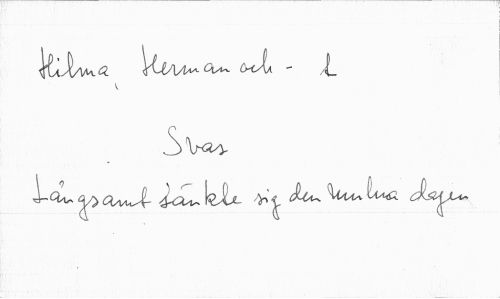 Hilma, Herman och - 1
Svar
Långsamt sänkte sig den mulna dagen